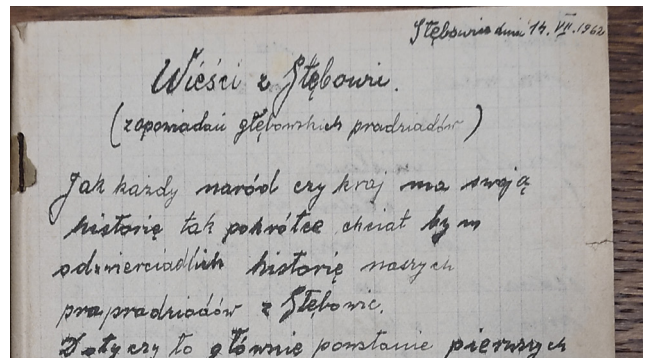 Głębowice dnia 14. VII. 1962
Wieści z Głębowic.
(z opowiadań głębowskich pradziadów)
Jak każdy naród czy kraj ma swoją
historię tak pokrótce chciał bym
odzwierciadlich historię naszych
prapradziadów z Głębowic.
Dotyczy to głównie powstanie pierwszych